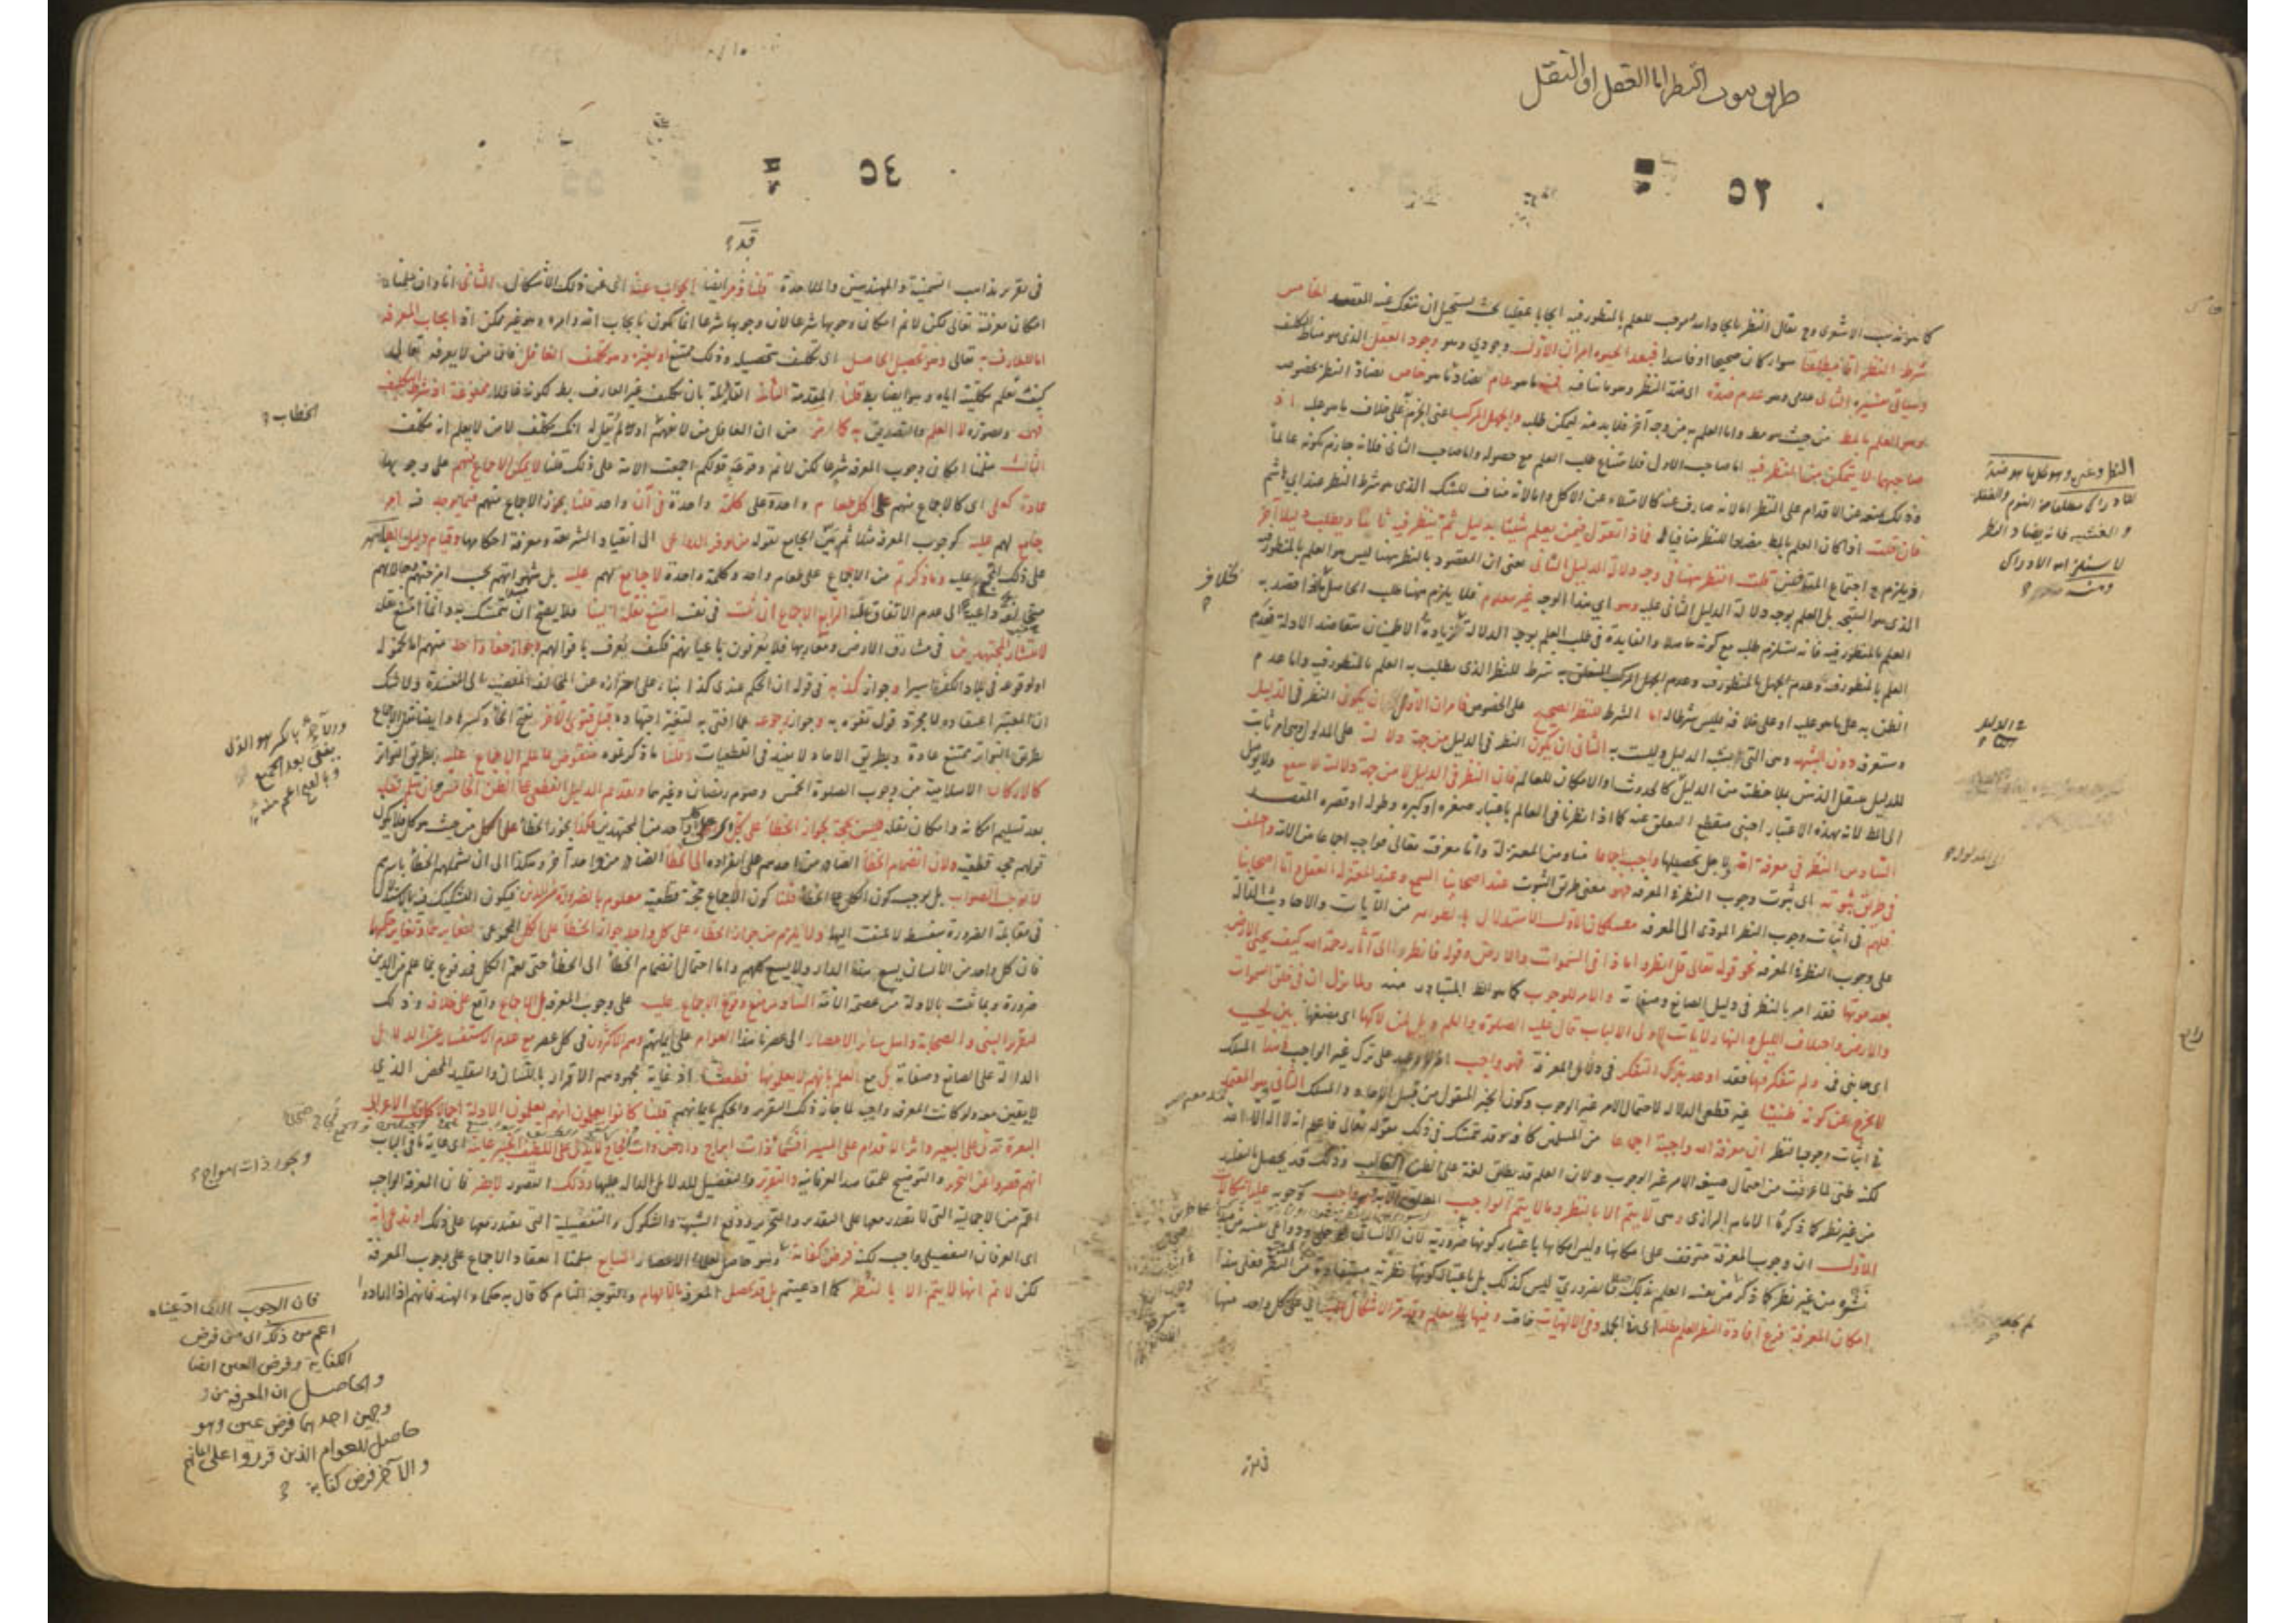 طريق ثبوت النظر اما العقل او النقل
٥٣
كما هو مذهب الاشعرى وح يقال النظر بايجاد الله موجب للعلم بالمنظور فيه ايجابا عقليا بحيث يستحيل ان ينفك عنه المقصد الخامس
شرط النظر اما مطلقا سواء كان صحيحا او فاسدا فبعد الحيوة امران الاول وجودي وهو وجود العقل الذى هو مناط التكليف
وسيأتى تفسيره الثانى عدمى وهو عدم ضده اى ضد النظر وهو ما ينافيه فمنه ما هو عام يضاد النظر وغيره ومنه ما هو خاص يضاد النظر بخصوصه
وهو العلم بالمط من حيث هو مط واما العلم به من وجه آخر فلا بد منه ليمكن طلبه والجهل المركب اعنى الجزم على خلاف ما هو عليه اذ
صاحبهما لا يتمكن من النظر فيه اما صاحب الاول فلامتناع طلب العلم مع حصوله واما صاحب الثانى فلانه جازم بكونه عالما
وذلك يمنعه من الاقدام على النظر اما لانه صارف عنه كالامتلاء عن الاكل واما لانه مناف للشك الذى هو شرط النظر عند ابى هاشم
فان قلت اذا كان العلم بالمط مضادا للنظر منافيا له فماذا تقول فيمن يعلم شيئا بدليل ثم ينظر فيه ثانيا ويطلب دليلا آخر
اذ يلزم ح اجتماع المتنافيين قلت النظر ههنا فى وجه دلالة الدليل الثانى يعنى ان المقصود بالنظر ههنا ليس هو العلم بالمنظور فيه
الذى هو النتيجة بل العلم بوجه دلالة الدليل الثانى عليه وهو اى هذا الوجه غير معلوم فلا يلزم ههنا طلب الحاصل بخلاف ما اذا قصد به
العلم بالمنظور فيه فانه يستلزم طلبه مع كونه حاصلا والفايدة فى طلب العلم بوجه الدلالة زيادة الاطمينان بتعاضد الادلة فعدم
العلم بالمنظور فيه وعدم الجهل بالمنظور فيه وعدم الجهل المركب المتعلق به شرط للنظر الذى يطلب به العلم بالمنظور فيه واما عدم
الظن به على ما هو عليه او على خلافه فليس شرطا له اما الشرط للنظر الصحيح على الخصوص فامران الاول ان يكون النظر فى الدليل
وستعرفه دون الشبهة وهى التى تشبه الدليل وليست به الثانى ان يكون النظر فى الدليل من جهة دلالته على المدلول وهى امر ثابت
للدليل ينتقل الذهن بملاحظته من الدليل كالحدوث او الامكان للعالم فان النظر فى الدليل لا من جهة دلالته لا ينفع ولا يوصل
الى المط لانه بهذه الاعتبار اجنبى منقطع التعلق عنه كما اذا نظرنا فى العالم باعتبار صغره او كبره وطوله او قصره المقصد
السادس النظر فى معرفة الله اى لاجل تحصيلها واجب اجماعا منا ومن المعتزلة واما معرفة الله تعالى فواجبة اجماعا من الامة واختلف
فى طريق ثبوته اى ثبوت وجوب النظر فى المعرفة فهو يعنى طريق الثبوت عند اصحابنا السمع وعند المعتزلة العقل اما اصحابنا
فلهم فى اثبات وجوب النظر المؤدى الى المعرفة مسلكان الاول الاستدلال بالظواهر من الآيات والاحاديث الدالة
على وجوب النظر فى المعرفة نحو قوله تعالى قل انظروا ماذا فى السموات والارض وقوله فانظر الى آثار رحمة الله كيف يحيى الارض
بعد موتها فقد امر بالنظر فى دليل الصانع وصفاته والامر للوجوب كما هو الظ المتبادر منه ولما نزل ان فى خلق السموات
والارض واختلاف الليل والنهار لايات لاولى الالباب قال عليه الصلوة والسلم ويل لمن لاكها اى مضغها بين لحييه
اى جانبى فمه ولم يتفكر فيها فقد اوعد بترك التفكر فى دلائل المعرفة فهو واجب اذ لا وعيد على ترك غير الواجب فهذا المسلك
لا يخرج عن كونه ظنيا غير قطعى الدلالة لاحتمال الامر غير الوجوب وكون الخبر المنقول من قبيل الاحاد والمسلك الثانى وهو المعتمد
فى اثبات وجوب النظر ان معرفة الله واجبة اجماعا من المسلمين كافة وقد يتمسك فى ذلك بقوله تعالى فاعلم انه لا اله الا الله
لكنه ظنى لما عرفت من احتمال صيغة الامر غير الوجوب ولان العلم قد يطلق لغة على الظن الغالب وذلك قد يحصل بالتقليد
من غير نظر كما ذكره الامام الرازى وهى لا يتم الا بالنظر وما لا يتم الواجب المطلق الا به فهو واجب كوجوبه عليه اشكالات
الاول ان وجوب المعرفة متوقف على امكانها وليس امكانها باعتبار كونها ضرورية لان الانسان لو خلى ودواعى نفسه من مبدأ
نشوه من غير نظر كما ذكر من نفسه العلم بذلك والضرورى ليس كذلك بل باعتبار كونها نظرية مستفادة من النظر فعلى هذا
امكان المعرفة فرع افادة النظر العلم مطلقا اى فى الجملة وفى الالهيات خاصة وفيها بلا معلم وقد مر الاشكال على كل واحد منها
النظر وغيره وهو كل ما هو ضد
للادراك مطلقا من النوم والغفلة
والغشية فانه يضاد النظر
لاستلزامه الادراك
ومنه
فى تقر
٥٤
قد
فى تقرير مذاهب السمنية والمهندسين والملاحدة قلنا وقد مر ايضا الجواب عنه اى عن ذلك الاشكال الثانى انا وان سلمنا
امكان معرفة الله تعالى لكن لانم امكان وجوبها شرعا لان وجوبها شرعا انما يكون بايجاب الله وامره وهو غير ممكن اذ ايجاب المعرفة
اما للعارف به تعالى وهو تحصيل الحاصل اى تكليف بتحصيله وذلك ممتنع او لغيره وهو تكليف الغافل فان من لا يعرفه تعالى
كيف يعلم تكليفه اياه وهو ايضا بط قلنا المقدمة الثانية القائلة بان تكليف غير العارف بط لكونه غافلا ممنوعة اذ شرط التكليف
فهمه وتصوره لا العلم والتصديق به كما مر من ان الغافل من لا يفهم او لم يقل له انك مكلف لا من لا يعلم انه مكلف
الثالث سلمنا امكان وجوب المعرفة شرعا لكن لانم وقوعه قولكم اجمعت الامة على ذلك قلنا لا يمكن الاجماع منهم على وجوبها
عادة كهو اى كالاجماع منهم على اكل طعام واحد وعلى كلمة واحدة فى آن واحد قلنا يجوز الاجماع منهم فيما يوجد فيه امر
جامع لهم عليه كوجوب المعرفة مثلا ثم بين الجامع بقوله من توفر الدواعى الى انقياد الشريعة ومعرفة احكامها وقيام دليل العلم الظاهر
على ذلك المجمع عليه وما ذكرتم من الاجماع على طعام واحد وكلمة واحدة لا جامع لهم عليه بل شهواتهم بحسب امزجتهم وحالاتهم
مختلفة داعية الى عدم الاتفاق عليه الرابع الاجماع ان ثبت فى نفسه امتنع نقله الينا فلا يصح ان يتمسك به وانما امتنع نقله
لانتشار المجتهدين فى مشارق الارض ومغاربها فلا يعرفون باعيانهم فكيف يعرف باقوالهم وجواز خفاء واحد منهم اما لخموله
او لوقوعه فى بلاد الكفرة اسيرا وجواز كذبه فى قوله ان الحكم عندى كذا بناء على احترازه عن المخالفة المفضية الى المفسدة ولا شك
ان المعتبر اعتقاده لا مجرد قول تفوه به وجواز رجوعه عما افتى به لتغير اجتهاده قبل فتوى الآخر بفتح الخاء وكسرها وايضا نقل الاجماع
بطريق التواتر ممتنع عادة وبطريق الاحاد لا يفيد فى القطعيات قلنا ما ذكرتموه منقوض بما علم الاجماع عليه بطريق التواتر
كالاركان الاسلامية من وجوب الصلوة الخمس وصوم رمضان وغيرهما وتقديم الدليل القطعى على الظن الخامس ان سلم نقله
بعد تسليم امكانه وامكان نقله فليس بحجة لجواز الخطأ على كل واحد من المجتهدين فكذا يجوز الخطأ على الكل من حيث هو كل فلا يكون
قولهم حجة قطعية ولان انضمام الخطأ الصادر من احدهم على انفراده الى الخطأ الصادر من واحد آخر وهكذا الى ان يشملهم الخطأ باسرهم
لا يوجب الصواب بل يوجب كون الكل على الخطأ قلنا كون الاجماع حجة قطعية معلوم بالضرورة من الدين فيكون التشكيك فيه بالاستدلال
فى مقابلة الضرورة سفسطة لا يلتفت اليها ولا يلزم من جواز الخطاء على كل واحد جواز الخطأ على الكل المجموعى لتغايرهما وتغاير حكمهما
فان كل واحد من الانسان يسع هذا الدار ولا يسع كلهم واما احتمال انضمام الخطأ الى الخطأ حتى يعم الكل فمدفوع بما علم من الدين
ضرورة وبما ثبت بالادلة من عصمة الامة السادس منع وقوع الاجماع عليه على وجوب المعرفة بل الاجماع واقع على خلافه وذلك
لتقرير النبى والصحابة واهل سائر الاعصار الى عصرنا هذا العوام على ايمانهم وهم الاكثرون فى كل عصر مع عدم الاستفسار عن الدلايل
الدالة على الصانع وصفاته بل مع العلم بانهم لا يعلمونها قطعا اذ غاية مجهودهم الاقرار باللسان والتقليد المحض الذي
لا يقين معه ولو كانت المعرفة واجبة لما جاز ذلك التقرير والحكم بايمانهم قلنا كانوا يعلمون انهم يعلمون الادلة اجمالا كما قال الاعرابى
البعرة تدل على البعير واثر الاقدام على المسير أفسماء ذات ابراج وارض ذات فجاج لا تدل على اللطيف الخبير غايته اى غاية ما فى الباب
انهم قصروا عن التحرير والتوضيح للمقاصد العرفانية والتقرير والتفصيل للدلائل الدالة عليها وذلك القصور لا يضر فان المعرفة الواجبة
اعم من الاجمالية التى لا يقتدر معها على التقدير والتحرير ودفع الشبهة والشكوك والتفصيلية التى يقتدر معها على ذلك او ندعى انه
اى العرفان التفصيلى واجب لكنه فرض كفاية وهو حاصل لعلماء الاعصار السابع سلمنا انعقاد الاجماع على وجوب المعرفة
لكن لانم انها لا يتم الا بالنظر كما ادعيتم بل قد يحصل المعرفة بالالهام والتوجه التام كما قال به حكماء الهند فانهم اذا ارادوا
الخطاب
والآخر بالكسر هو الذى
يبقى بعد الجميع
وبالفتح اعم منه
ويجوز ذات ابراج
فان الوجوب الذى ادعيناه
اعم من ذلك اى من فرض
الكفاية وفرض العين ايضا
والحاصل ان المعرفة من
وجهين احدهما فرض عين وهو
حاصل للعوام الذين قرروا على ايمانهم
والآخر فرض كفاية